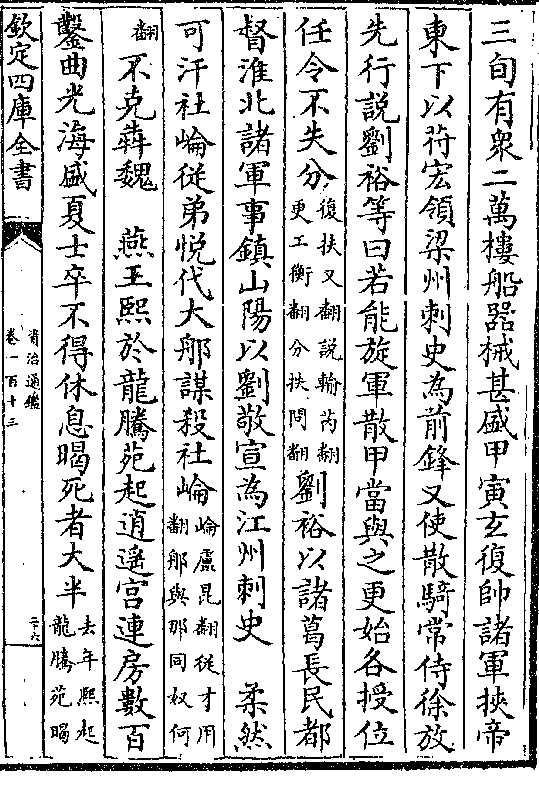 三旬有衆二萬樓船器械甚盛甲寅玄復帥諸軍挾帝
東下以苻宏領梁州刺史為前鋒又使散騎常侍徐放
先行說劉裕等曰若能旋軍散甲當與之更始各授位
任令不失分復扶又翻說輸芮翻更工衡翻分扶問翻劉裕以諸葛長民都
督淮北諸軍事鎮山陽以劉敬宣為江州刺史　柔然
可汗社崘從弟悦代大那謀殺社崘崘盧昆翻從才用翻那與那同奴何
翻不克犇魏　燕王熙於龍騰苑起逍遥宫連房數百
鑿曲光海盛夏士卒不得休息暍死者大半去年熙起龍騰苑暍
欽定四庫全書
資治通鑑
卷一百十三
二十六